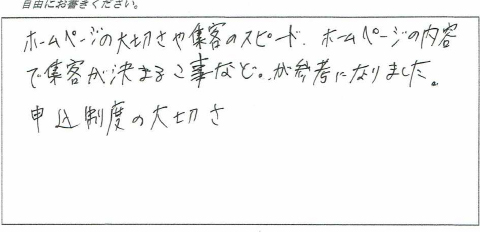 自由にお書きください。
ホームページの大切さや集客のスピード、ホームページの内容
で集客が決まるこ事など。が参考になりました。
申込制度の大切さ